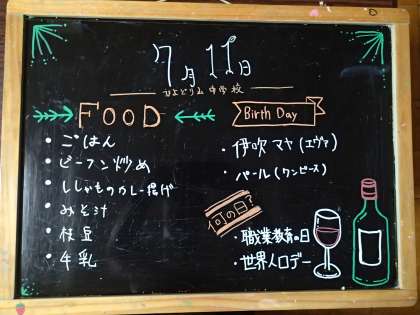 7月11日
ひよどり山中学校
FOOD
・ごはん
・ビーフン炒め
・ししゃものカレー揚げ
・みそ汁
・枝豆
・牛乳
Birth Day
・伊吹マヤ(エヴァ)
・パール(ワンピース)
何の日?
・職業教育の日
・世界人口デー